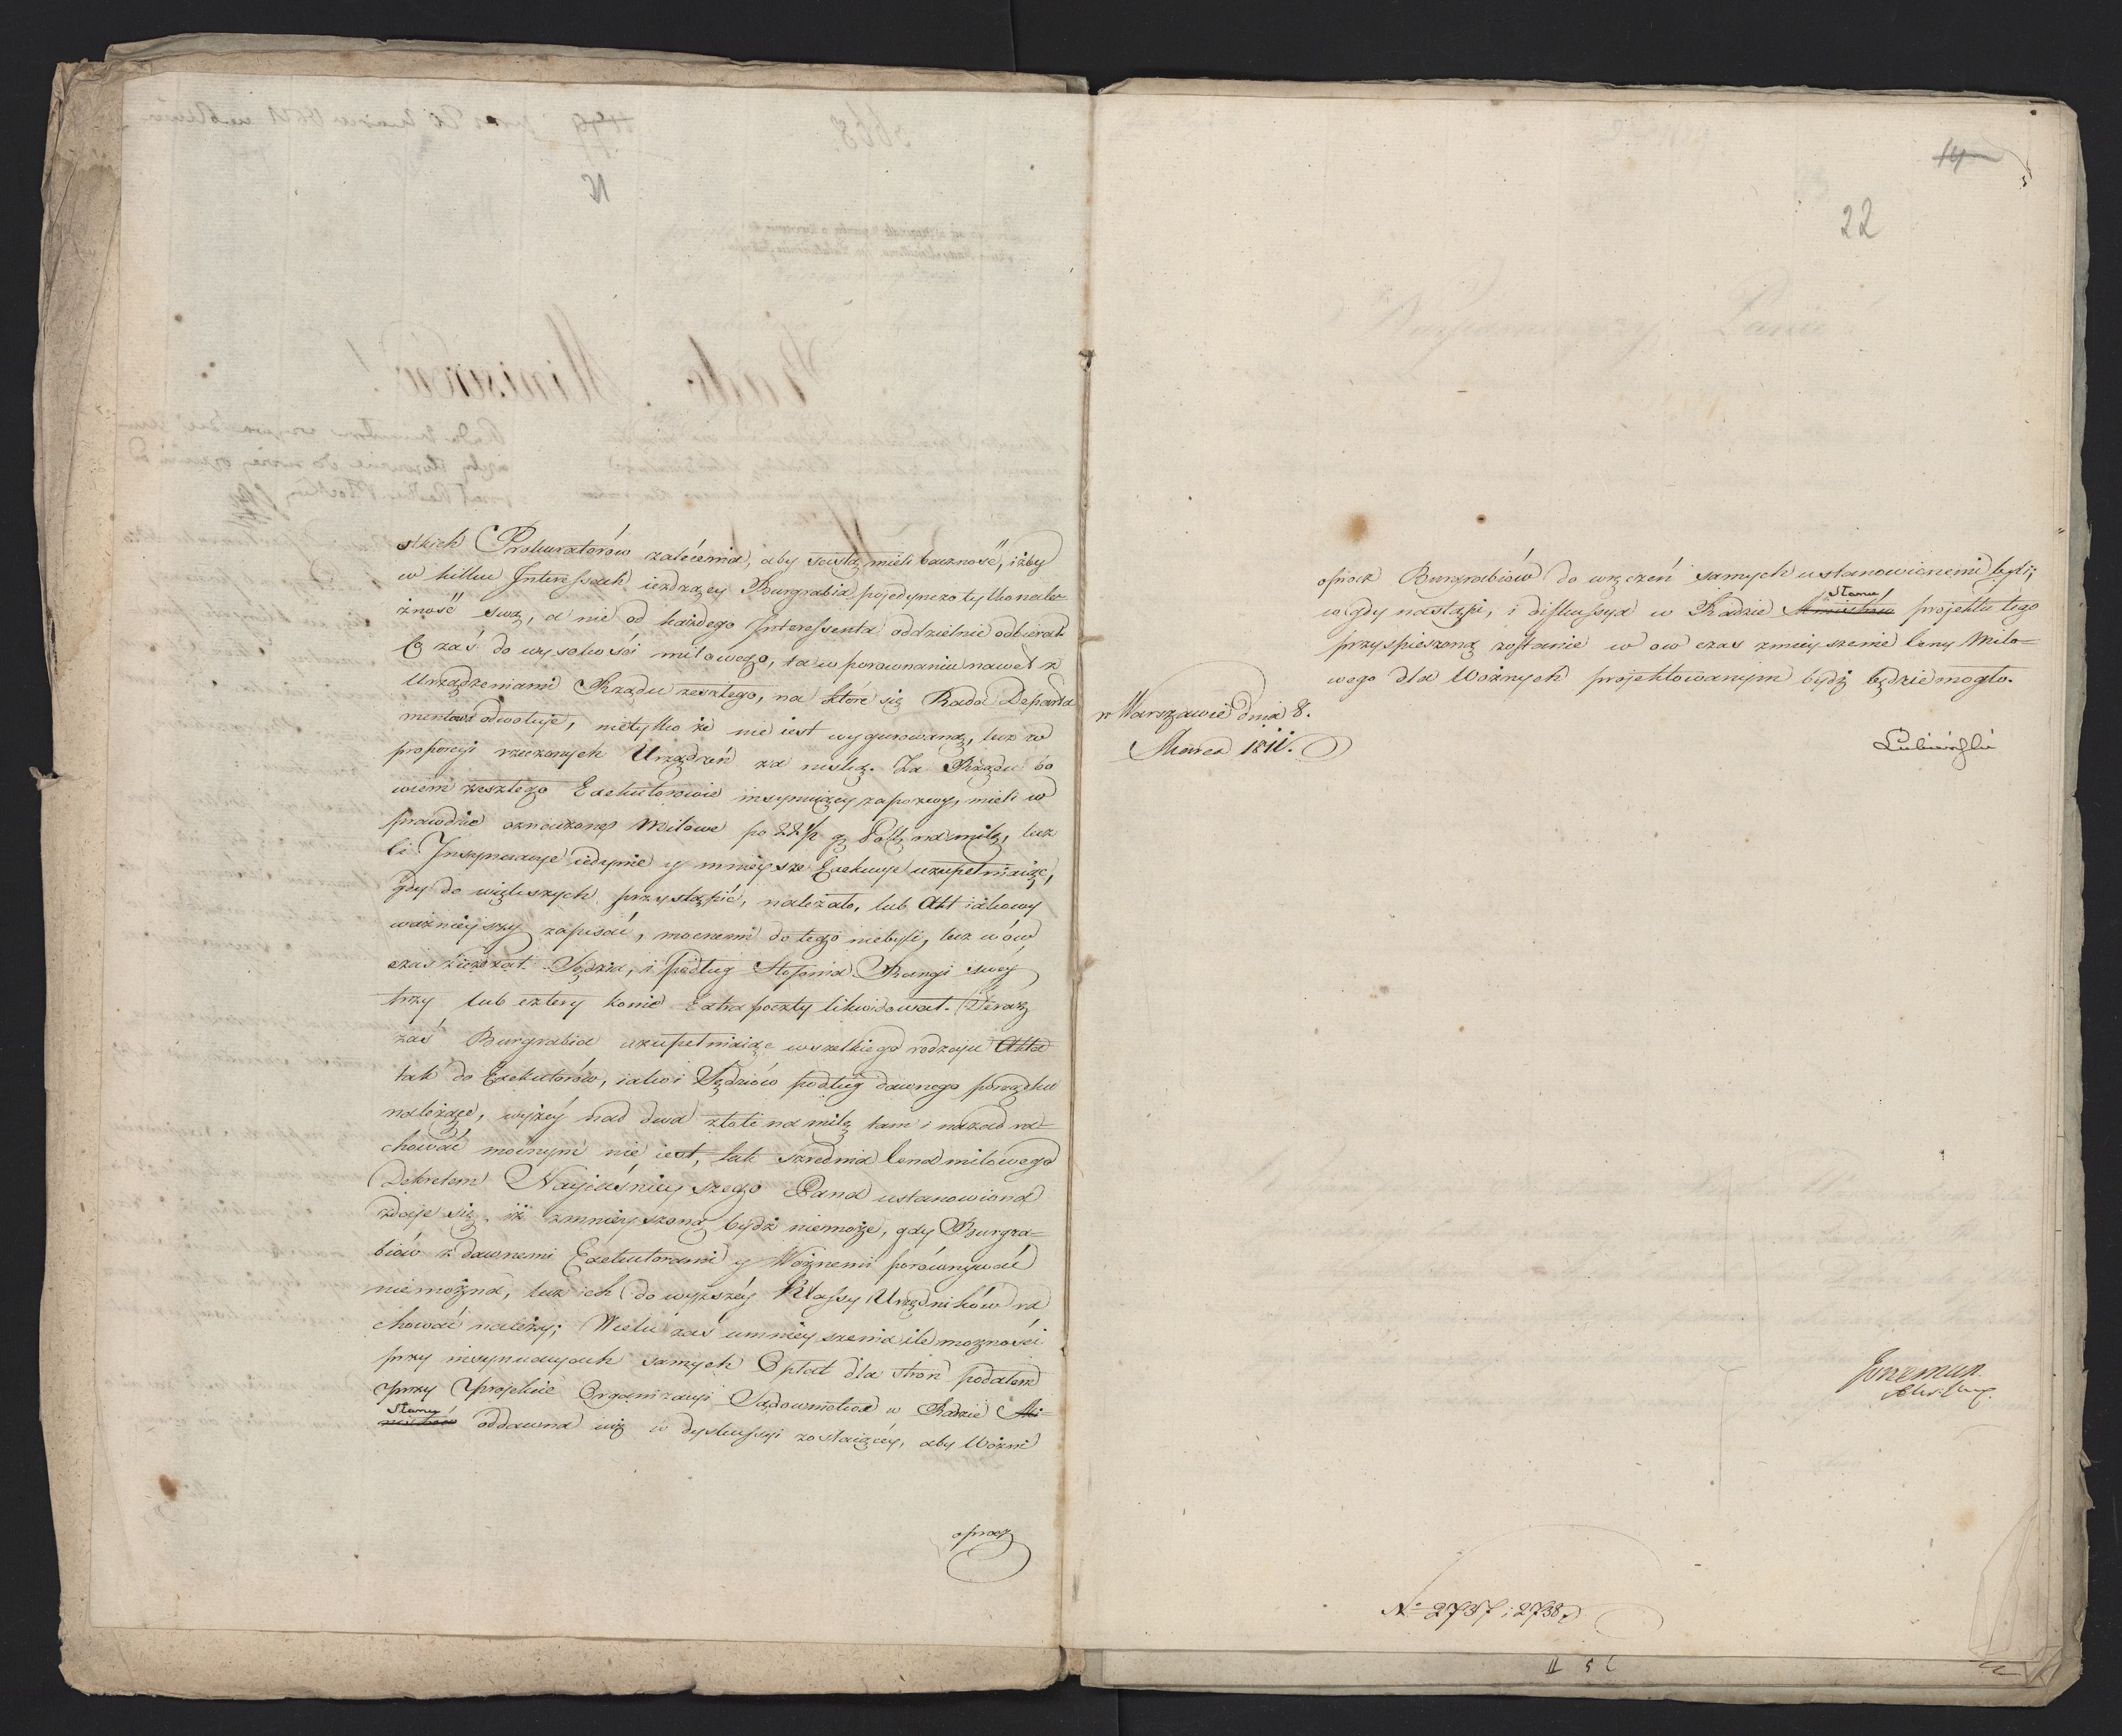 stkich Prokuratorów zalécenia, aby scisłą mieli baczność, iżby
w kilku Interessach ieżdżący Burgrabia pojedynczo tylko nale-
żność swą, a nie od każdego Interessenta oddzielnie odbierał.
Co zaś do wysokości milowego, ta w porownaniu nawet z
Urządzeniami Rządu zeszłego, na które się Rada Departa
mentowa odwołuje, nietylko że nie iest wygurowaną, lecz w
proporcyi rzeczonych Urządzeń za niską. Za Rządu bo
wiem zeszłego Exekutorowie insynuiący zapozwy, mieli w
prawdzie oznaczone Milowe po 22 1/2 gr Pol: na milę, lecz
Ci Insynuacye iedynie y mnieysze Exekucye uzupełniaiąc,
gdy do większych przystąpić, należało, lub Akt iakowy
ważnieyszy zapisać, mocnemi do tego niebyli, lecz wów
czas zieżdżał Sędzia, i podług Stopnia Rangi swey
trzy lub cztery konie Extra poczty likwidował. Teraz
zaś Burgrabia uzupełniaiąc wszelkiego rodzaju Akta
tak do Exekutorów, iako i Sędziów podług dawnego porządku
należące, wyżey nad dwa złote na milę tam i nazad ra-
chować mocnym nie iest, tak szrednia Cena milowego
Dekretem Nayiaśnieyszego Pana ustanowiona
zdaje się, iż zmnieyszoną bydź niemoże, gdy Burgra-
biów z dawnemi Exekutorami y Woźnemi porównywać
niemożna, lecz ich do wyższéy Klassy Urzędników ra
chować należy; W celu zaś umnieyszenia ile możności
przy insynuacyach samych Opłat dla stron podałem
przy projekcie Organizacyi Sądownictwa w Radzie Mi-
Stanu
nistrów oddawna iuż w dyskussyi zostaiącéy, aby Woźni
oprocz
14
22
oprocz Burgrabiów do wręczeń samych ustanowionemi byli;
Stanu
co gdy nastąpi, i diskussya w Radzie Ministrów projektu tego
przyspieszoną zostanie w ow czas zmnieyszenie Ceny Milo-
wego dla Woźnych projektowanym bydź będzie mogło.
w Warszawie dnia 8.
Marca 1811.
Łubieński
N° 2737 i 2738